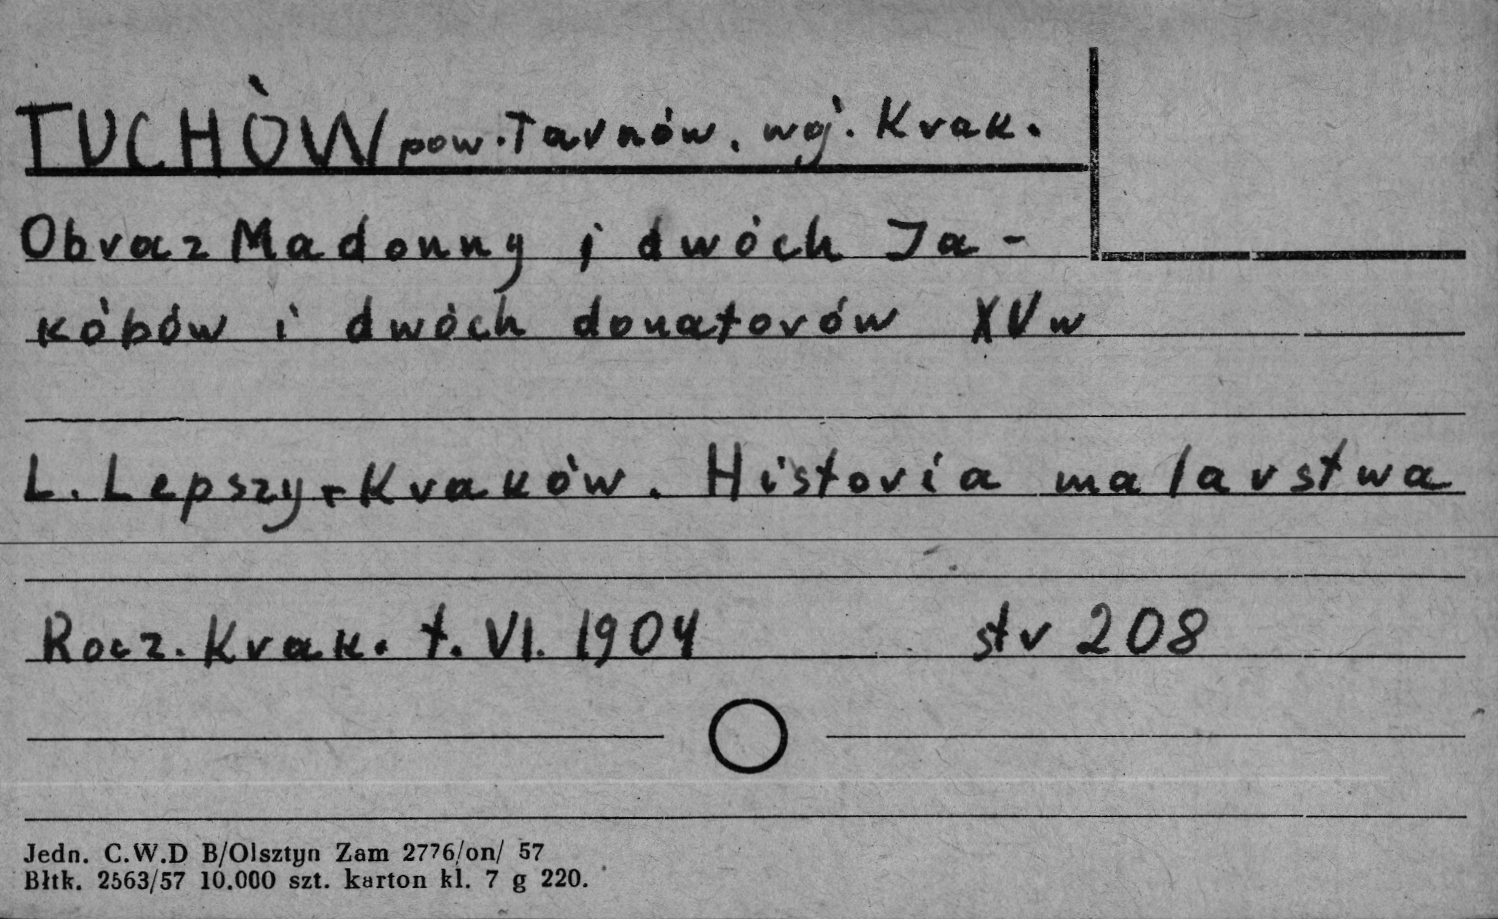 TUCHÓW pow. Tarnów, woj. Krak.
Obraz Madonny i dwóch Ja-
kóbów i dwóch donatorów XV w
L. Lepszy - Kraków. Historia malarstwa
Rocz. Krak. t. VI. 1904 str 208
Jedn. C.W.D B/Olsztyn Zam 2776/on/ 57
Błtk. 2563/57 10.000 szt. karton kl. 7 g 220.